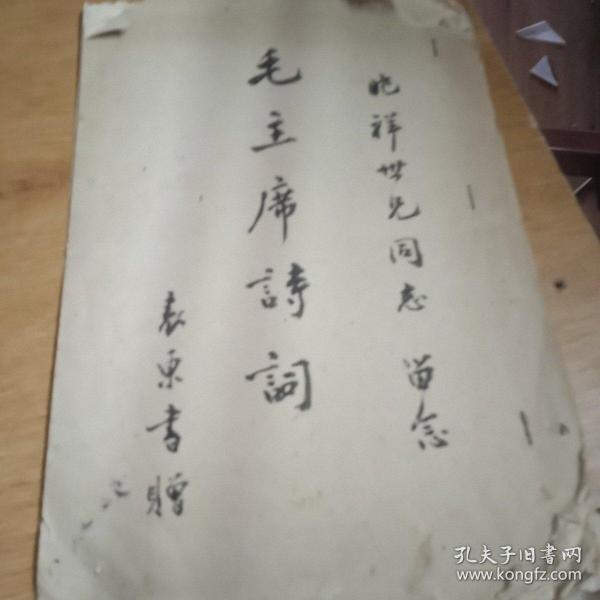 兆祥世兄同志 留念
毛主席詩詞
书赠
孔夫子旧书网
www.kongfz.com